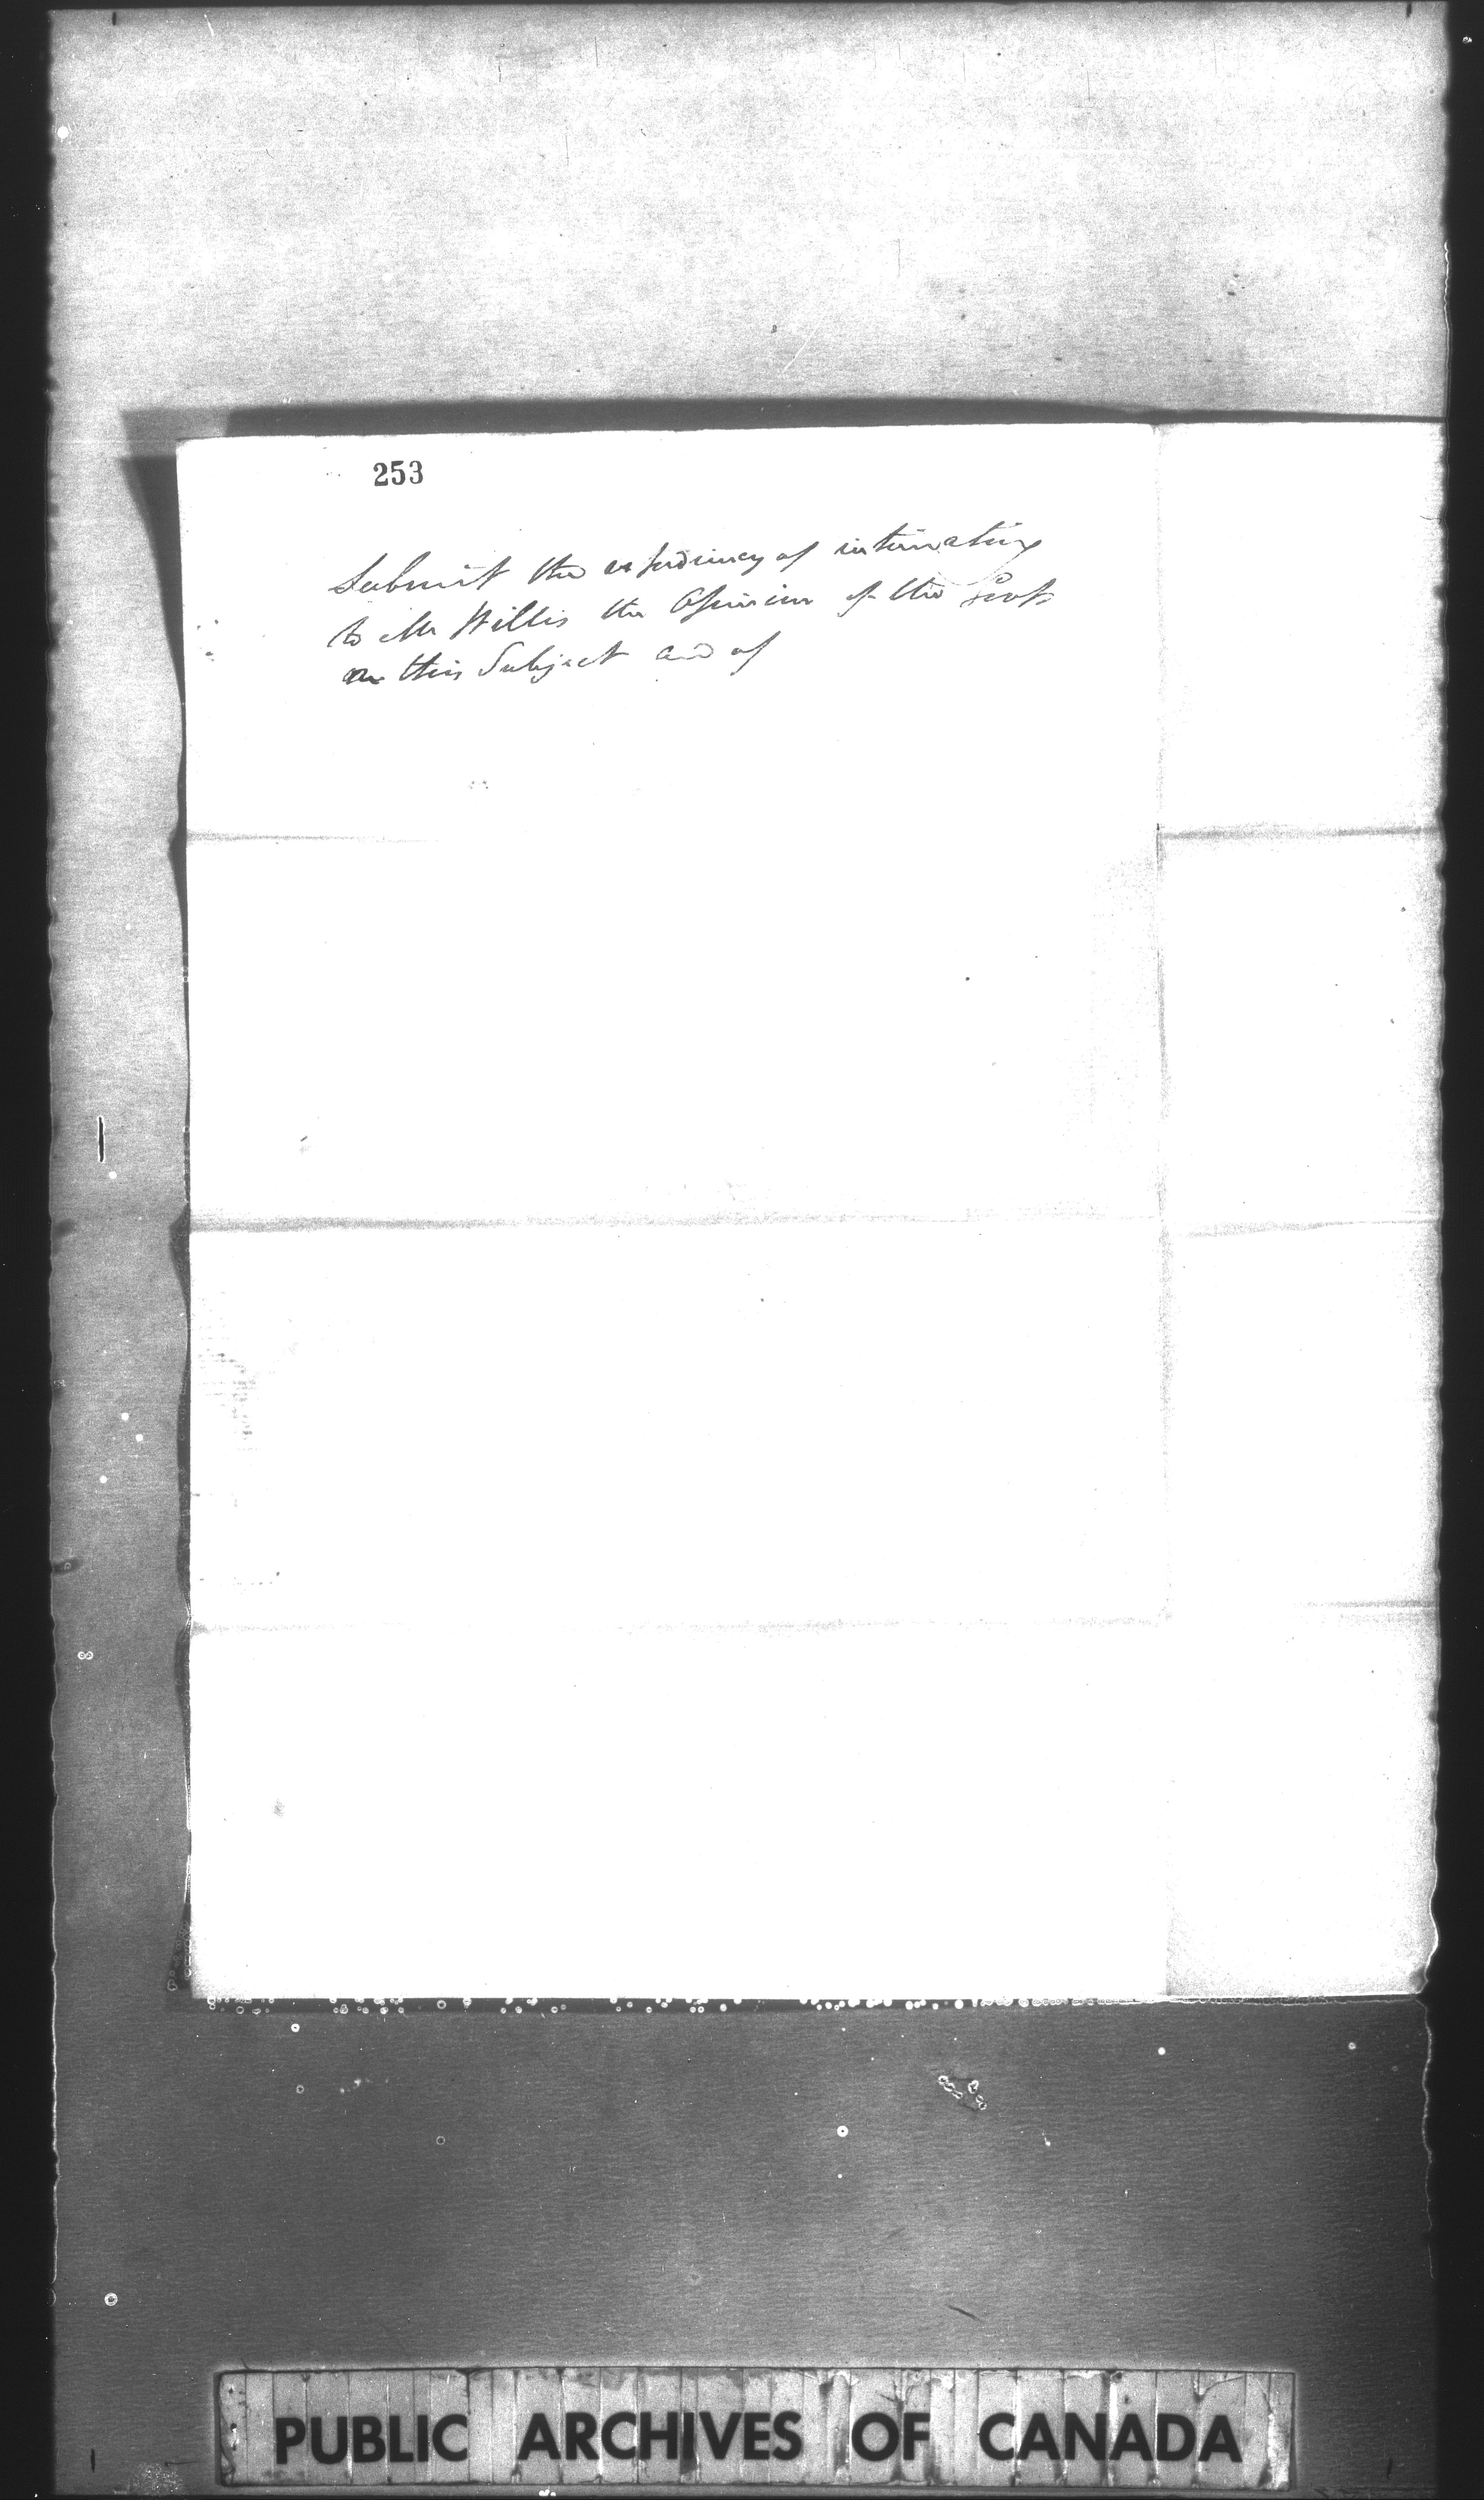 253
Submit the expediency of intimating
to Mr Willis the Opinion of the Govt
on this Subject and of
PUBLIC ARCHIVES OF CANADA